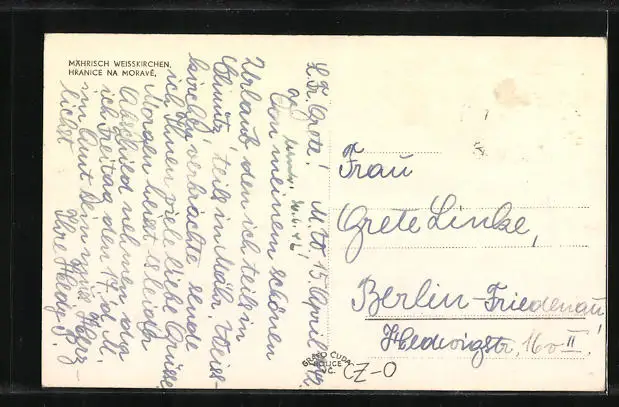 MÄHRISCH WEISSKIRCHEN,
HRANICE NA MORAVĚ,
L. Fr. Grete! M. W., 15. April
Von meinem schönen
Urlaub den ich teils in
Olmütz, teils in Mähr. Weiss-
kirchen verbrachte sende
ich Ihnen viele liebe Grüsse
Morgen heisst es leider
Abschied nehmen, da
ich Freitag den 17. d. M.
im Amt bin
lichst
Ihre Hedy
Frau
Grete Linke,
Berlin-Friedenau,
Hedwigstr. 16 II.
GRAFO CUPAL
POLICE
Č.
CZ-O